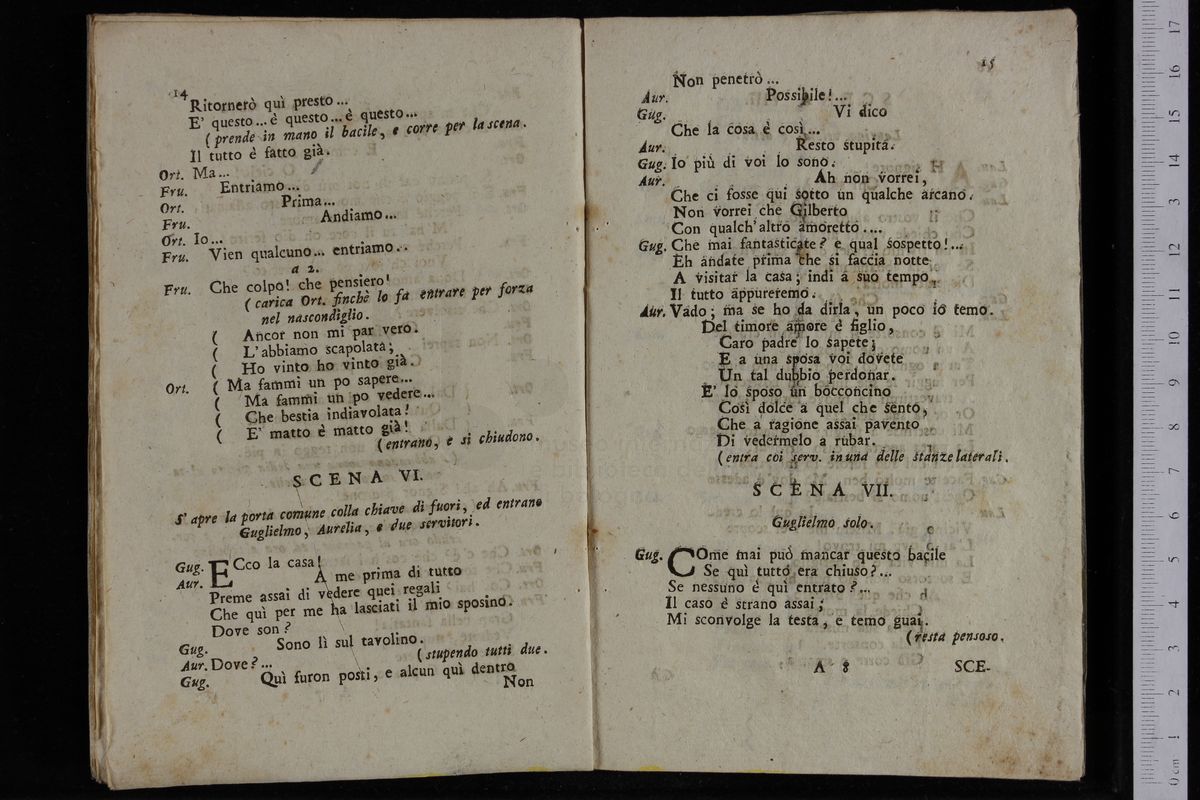 14
Ritornerò quì presto...
E' questo... è questo... è questo...
(prende in mano il bacile, e corre per la scena.
Il tutto è fatto già.
Ort. Ma...
Fru. Entriamo...
Ort. Prima...
Fru. Andiamo...
Ort. Io...
Fru. Vien qualcuno... entriamo..
a 2.
Fru. Che colpo! che pensiero!
(carica Ort. finchè lo fa entrare per forza
nel nascondiglio.
( Ancor non mi par vero.
( L'abbiamo scapolata;
( Ho vinto ho vinto già.
Ort. ( Ma fammi un po sapere...
( Ma fammi un po vedere...
( Che bestia indiavolata!
( E' matto è matto già!
(entrano, e si chiudono.
SCENA VI.
S'apre la porta comune colla chiave di fuori, ed entrano
Guglielmo, Aurelia, e due servitori.
Gug. ECco la casa!
Aur. A me prima di tutto
Preme assai di vedere quei regali
Che quì per me ha lasciati il mio sposino.
Dove son?
Gug. Sono lì sul tavolino.
(stupendo tutti due.
Aur. Dove?...
Gug. Quì furon posti, e alcun quì dentro
Non
15
Non penetrò...
Aur. Possibile!...
Gug. Vi dico
Che la cosa è così...
Aur. Resto stupita.
Gug. Io più di voi lo sono.
Aur. Ah non vorrei,
Che ci fosse qui sotto un qualche arcano.
Non vorrei che Gilberto
Con qualch'altro amoretto....
Gug. Che mai fantasticate? e qual sospetto!...
Eh andate prima che si faccia notte
A visitar la casa; indi a suo tempo,
Il tutto appureremo.
Aur. Vado; ma se ho da dirla, un poco io temo.
Del timore amore è figlio,
Caro padre lo sapete;
E a una sposa voi dovete
Un tal dubbio perdonar.
E' lo sposo un bocconcino
Così dolce a quel che sento,
Che a ragione assai pavento
Di vedermelo a rubar.
(entra coi serv. in una delle stanze laterali.
SCENA VII.
Guglielmo solo.
Gug. COme mai può mancar questo bacile
Se quì tutto era chiuso?...
Se nessuno è quì entrato?...
Il caso è strano assai;
Mi sconvolge la testa, e temo guai.
(resta pensoso.
A 8 SCE-